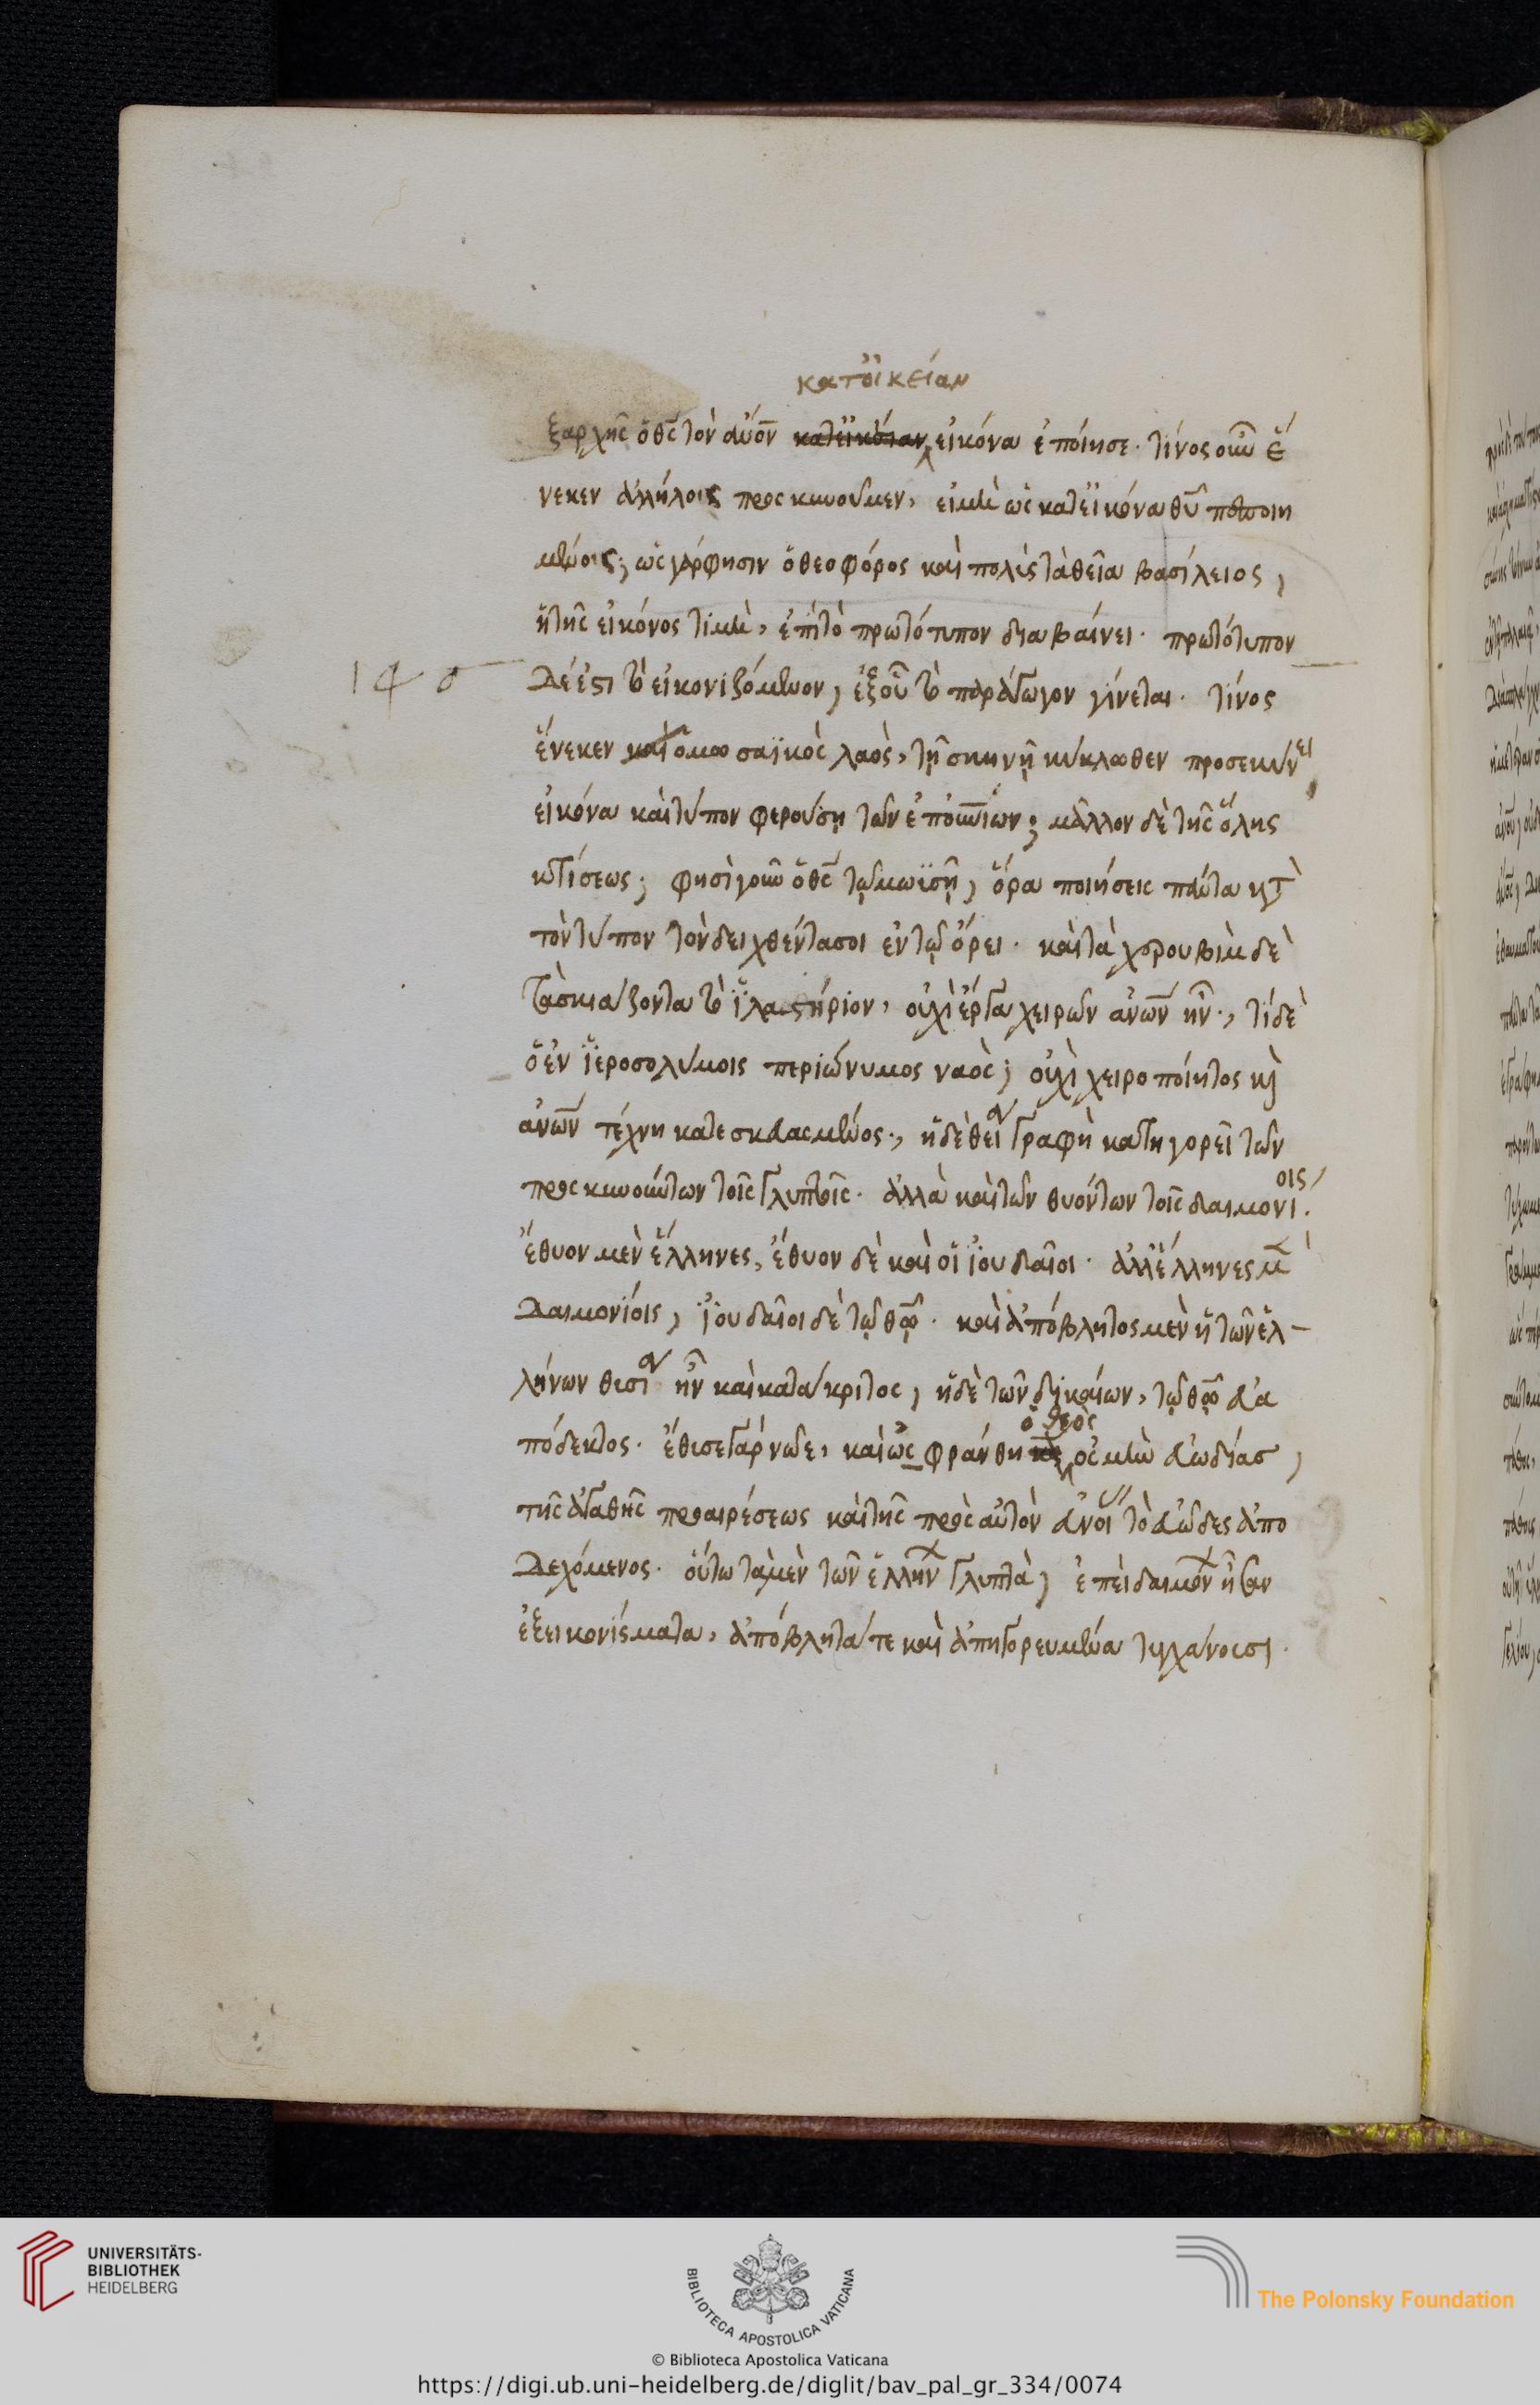 κατ οἰκείαν
ξαρχῆς ὁ θς τὸν ἄνον κατεἰκόναν εἰκόνα ἐποίησε. τίνος οὖν ἕ
νεκεν ἀλλήλοις προσκυνοῦμεν, εἰ μὴ ὡς κατ εἰκόνα θυ πεποιη
μένοις; ὡς γάρ φησιν ὁ θεοφόρος καὶ πολὺς τὰ θεῖα βασίλειος,
ἡ τῆς εἰκόνος τιμὴ, ἐπὶ τὸ πρωτότυπον διαβαίνει. πρωτότυπον
14 σ
δέ ἐστι τὸ εἰκονιζόμενον, ἐξ οὗ τὸ παράγωγον γίνεται. τίνος
ἕνεκεν καὶ ὁ μωσαϊκὸς λαὸς, τῇ σκηνῇ κύκλωθεν προσεκύνει
εἰκόνα καὶ τύπον φερούση τῶν ἐπουνίων; μᾶλλον δὲ τῆς ὅλης
κτίσεως; φησὶ γοῦν ὁ θς τῷ μωϊσῇ, ὅρα ποιήσεις πάντα κτ
τὸν τύπον τὸν δειχθέντα σοι ἐν τῷ ὄρει. καὶ τὰ χερουβὶμ δὲ
τὰ σκιάζοντα τὸ ἱλαστήριον, οὐχὶ ἔργα χειρῶν ἀνων ἦν., τί δὲ
ὁ ἐν ἱεροσολύμοις περιώνυμος ναὸς; οὐχὶ χειροποίητος κὶ
ἀνων τέχνη κατεσκευασμένος., ἡ δὲ θεία γραφὴ κατηγορεῖ τῶν
προσκυνούντων τοῖς γλυπτοῖς. ἀλλὰ καὶ τῶν θυόντων τοῖς δαιμονίοις.
ἔθυον μὲν ἕλληνες, ἔθυον δὲ καὶ οἱ ἰουδαῖοι. ἀλλ ἕλληνες μὲν
δαιμονίοις, ἰουδαῖοι δὲ τῷ θῷ. καὶ ἀπόβλητος μὲν ἡ τῶν ἑλ-
λήνων θυσία ἦν καὶ κατάκριτος, ἡ δὲ τῶν δικαίων, τῷ θῷ εὐα
πόδεκτος. ἔθυσε γὰρ νῶε, καὶ ὠσφράνθη κς ὁ θεὸς ὀσμὴν εὐωδίας,
τῆς ἀγαθῆς προαιρέσεως καὶ τῆς πρὸς αὐτὸν εὐνοίας τὸ εὐῶδες ἀπο
δεχόμενος. οὕτω τὰ μὲν τῶν ἑλλήνων γλυπτὰ, ἐπεὶ δαιμόνων ἦσαν
ἐξεικονίσματα, ἀπόβλητά τε καὶ ἀπηγορευμένα τυγχάνουσι.
UNIVERSITÄTS-
BIBLIOTHEK
HEIDELBERG
BIBLIOTECA APOSTOLICA VATICANA
The Polonsky Foundation
© Biblioteca Apostolica Vaticana
https://digi.ub.uni-heidelberg.de/diglit/bav_pal_gr_334/0074